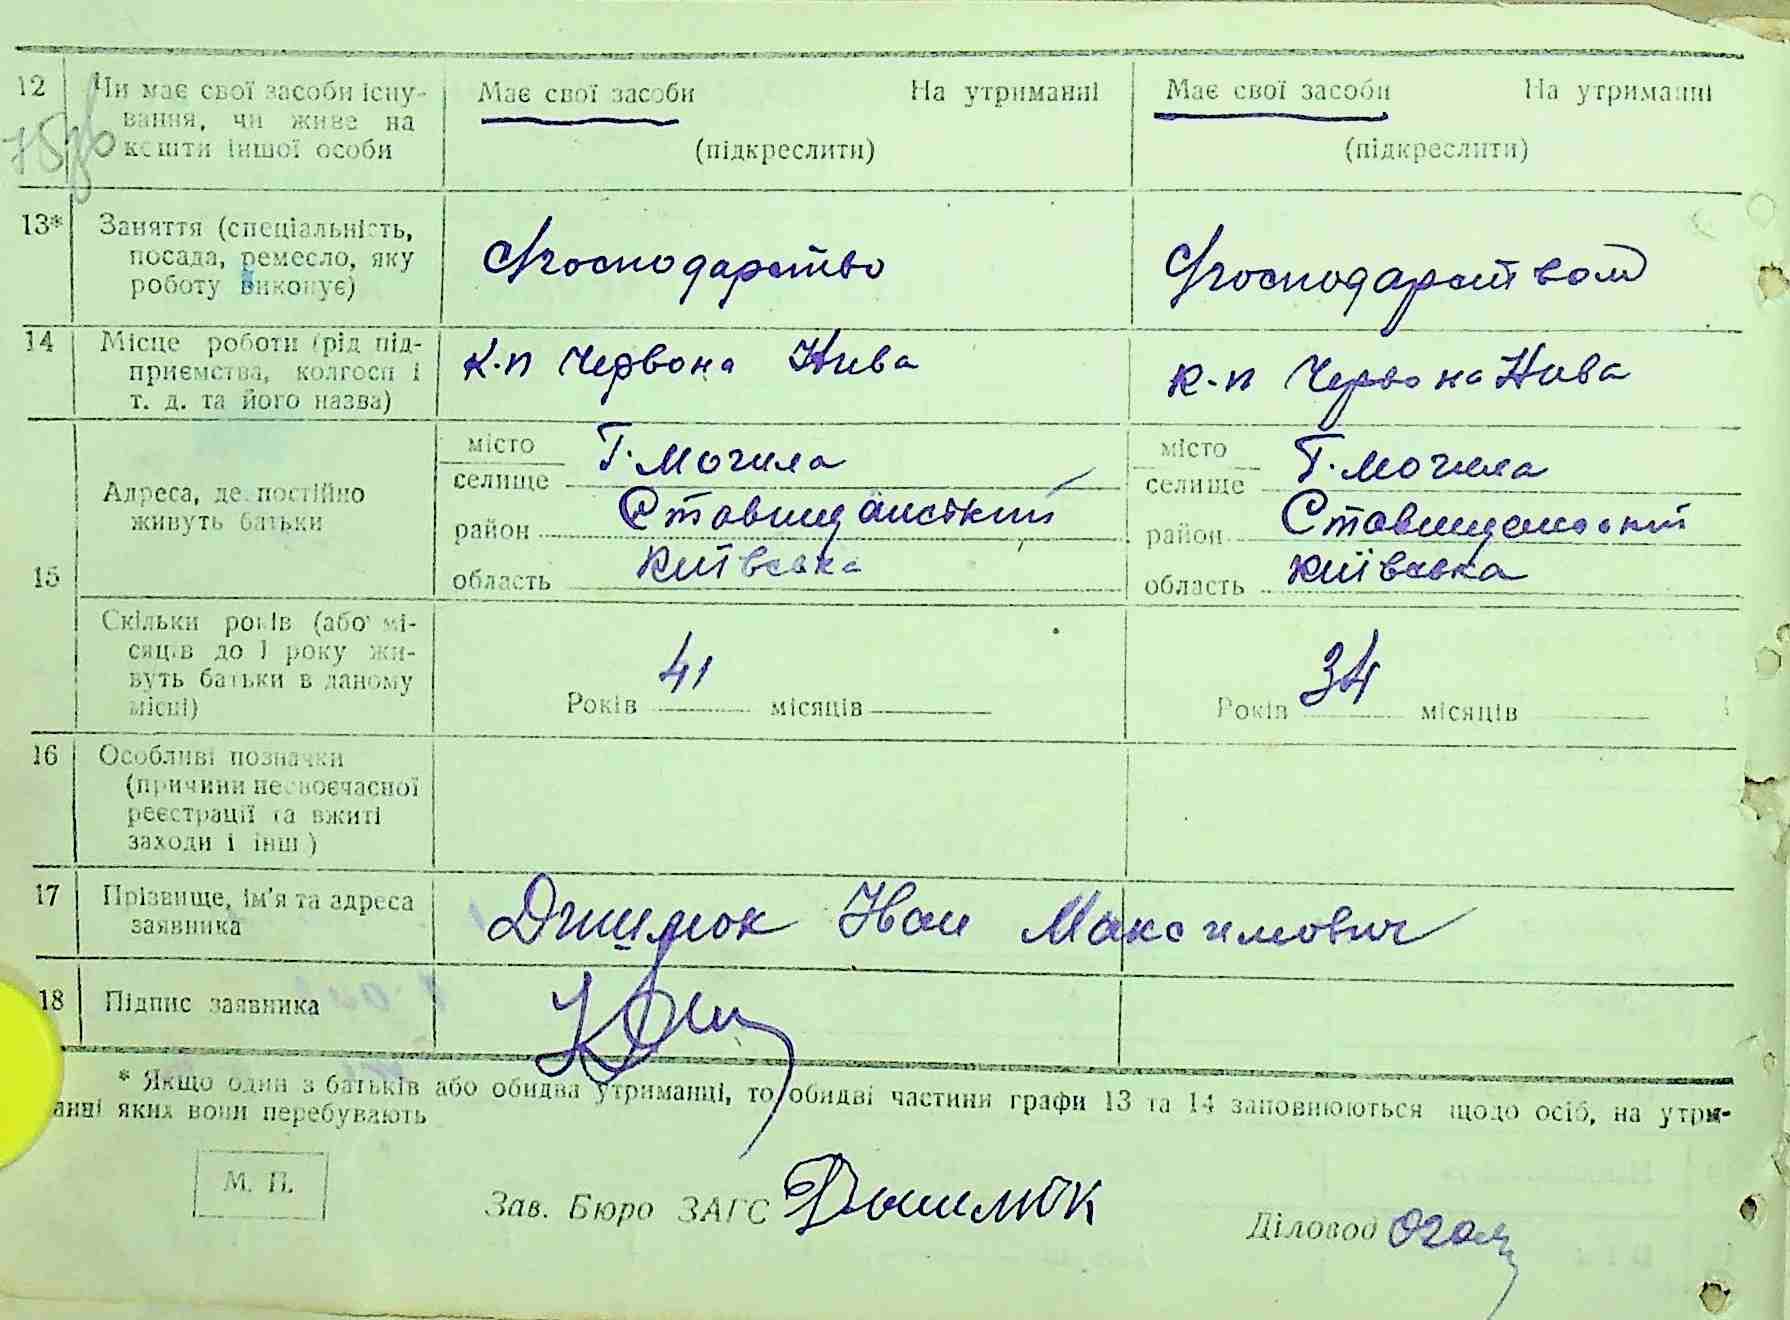 12 Чи має свої засоби існу-
вання, чи живе на
кошти іншої особи
Має свої засоби На утриманні
(підкреслити)
Має свої засоби На утриманні
(підкреслити)
13* Заняття (спеціальність,
посада, ремесло, яку
роботу виконує)
господарство
господарством
14 Місце роботи (рід під-
приємства, колгосп і
т. д. та його назва)
к-п Червона Нива
к-п Червона Нива
15
Адреса, де постійно
живуть батьки
місто
селище Г. Могила
район Ставищанський
область Київська
місто
селище Г. Могила
район Ставищанський
область Київська
Скільки років (або мі-
сяців до 1 року жи-
вуть батьки в даному
місці)
Років 41 місяців
Років 34 місяців
16 Особливі позначки
(причини несвоєчасної
реєстрації та вжиті
заходи і інш)
17 Прізвище, ім'я та адреса
заявника
Іван Максимович
18 Підпис заявника
* Якщо один з батьків або обидва утриманці, то обидві частини графи 13 та 14 заповнюються щодо осіб, на утри-
анні яких вони перебувають
М. П.
Зав. Бюро ЗАГС
Діловод